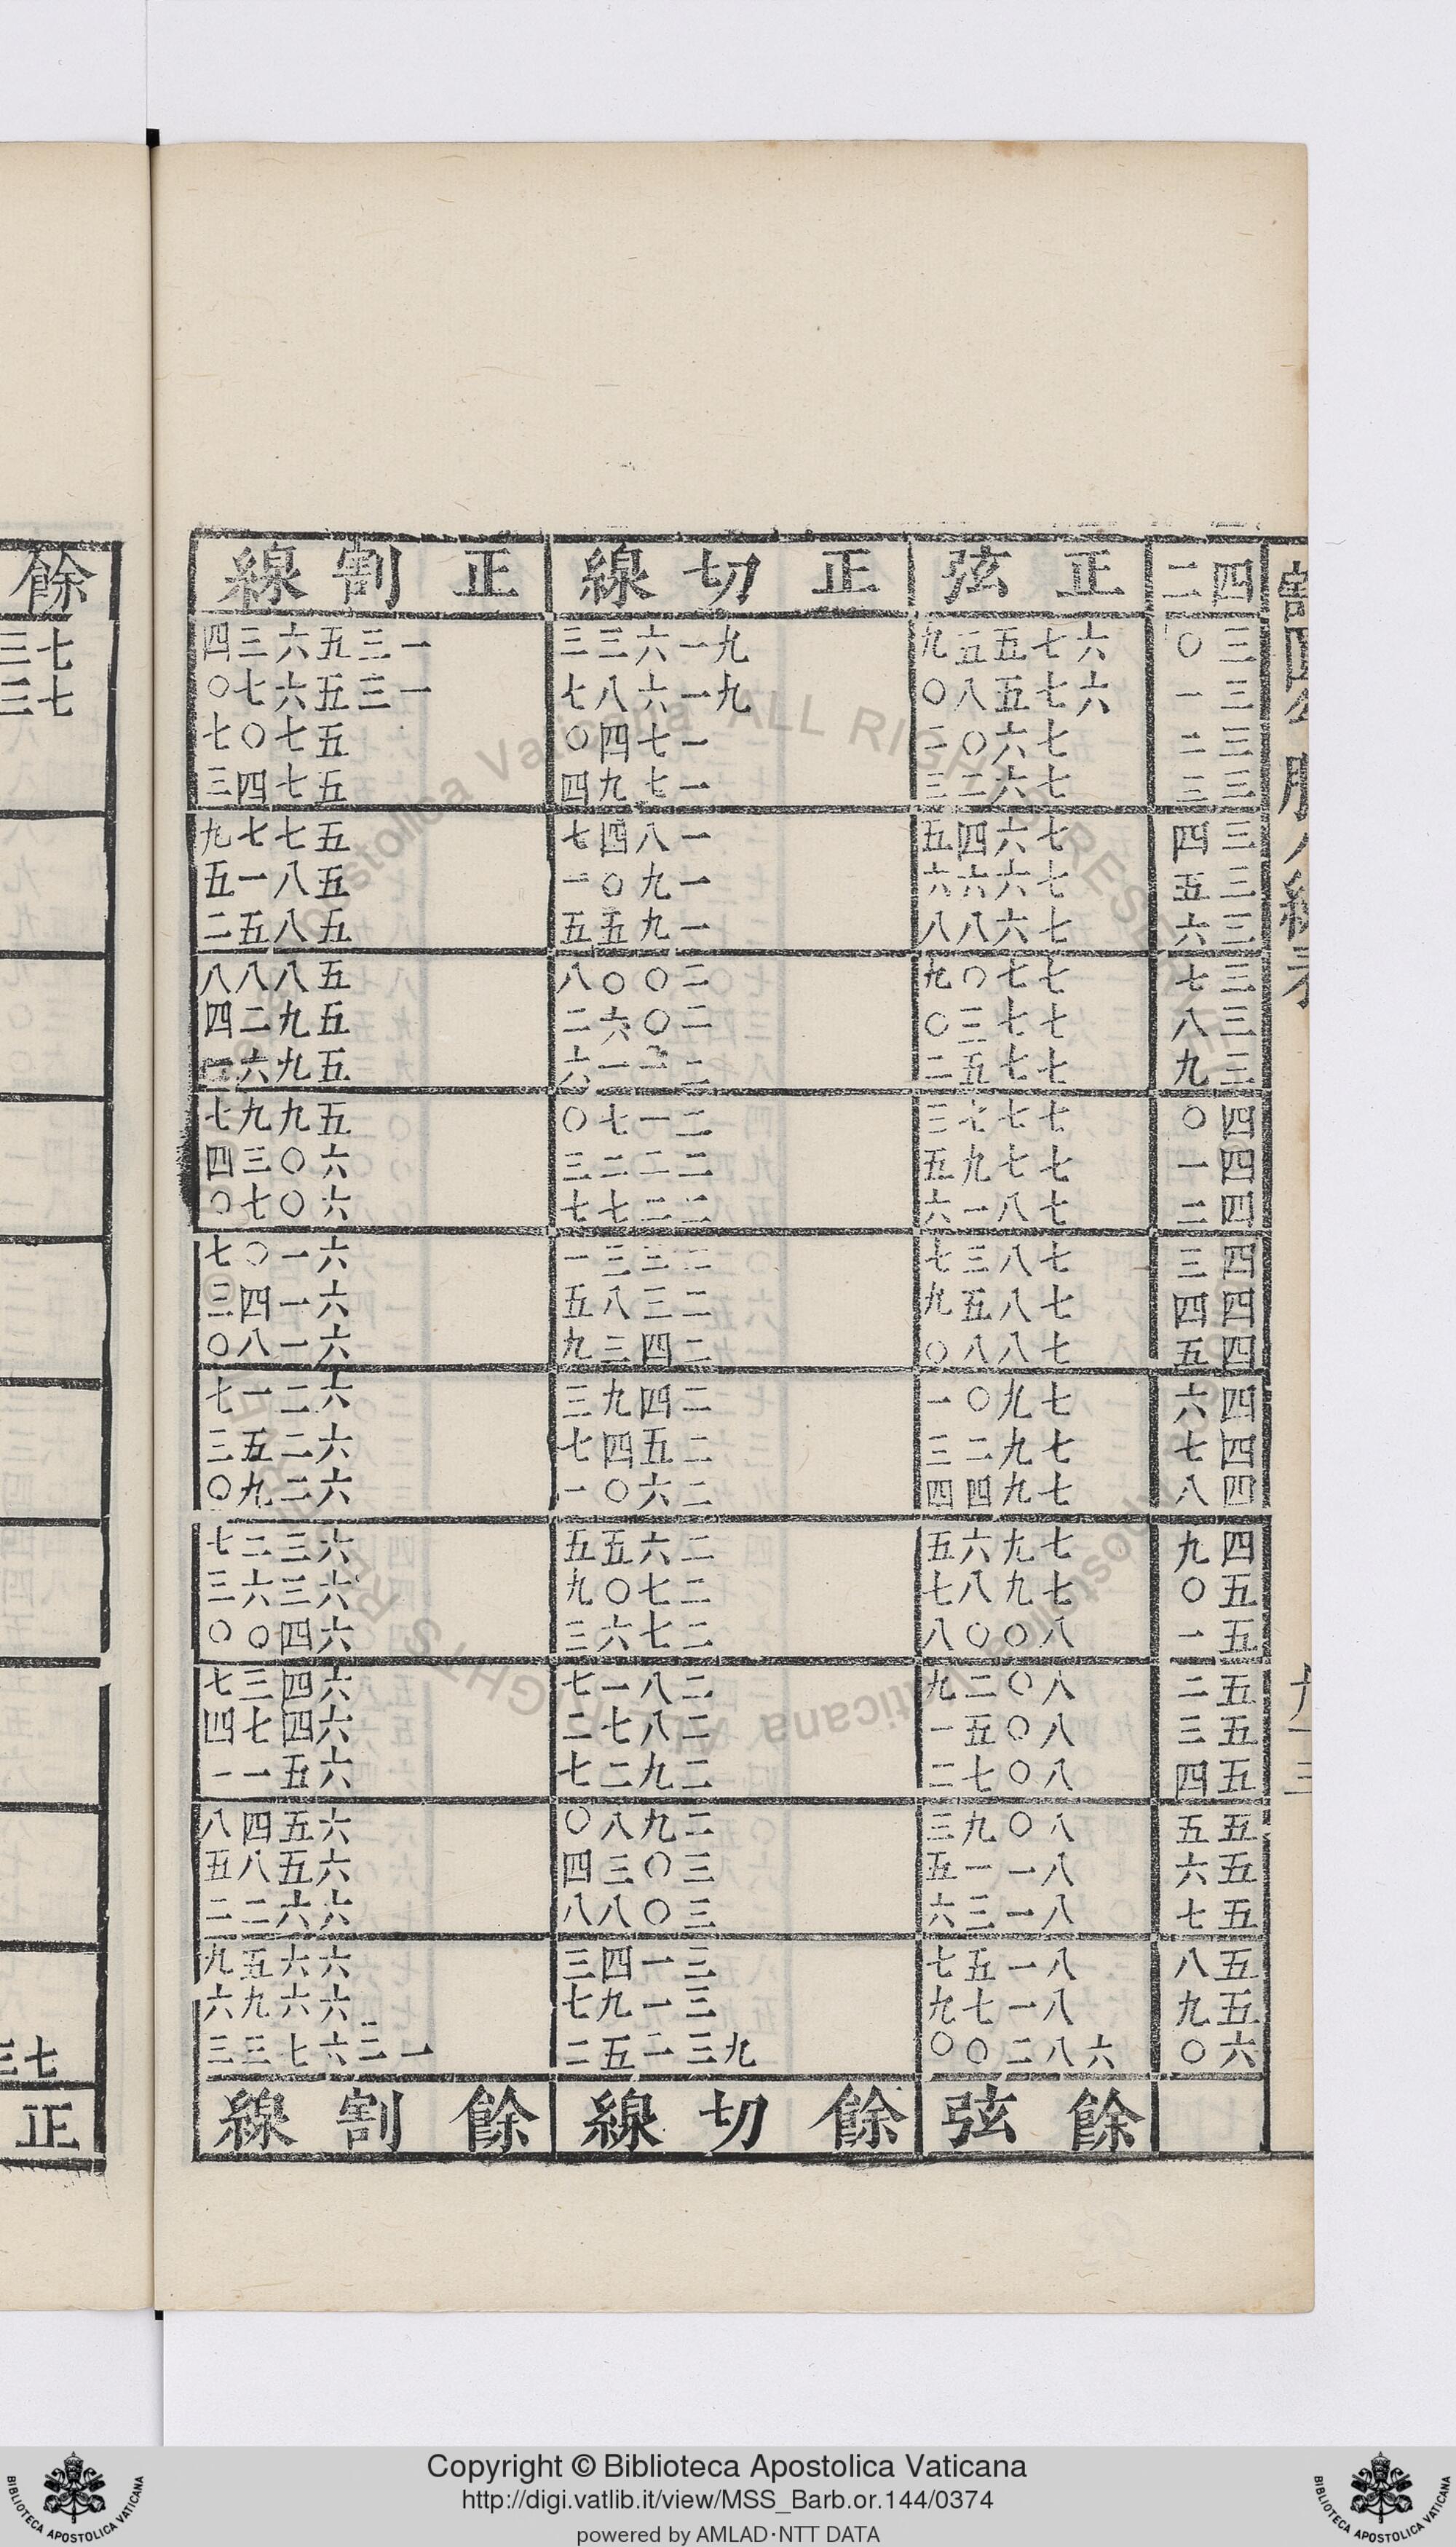 割圓勾股八線表
九十三
四二 正弦 正切線 正割線
三〇 六七五五九 九一六三三 一三五六三四
三一 六七五八〇 九一六八七 一三五六七〇
三二 七六〇二 一七四〇 五七〇七
三三 七六二三 一七九四 五七四三
三四 七六四五 一八四七 五七七九
三五 七六六六 一九〇一 五八一五
三六 七六八八 一九五五 五八五二
三七 七七〇九 二〇〇八 五八八八
三八 七七三〇 二〇六二 五九二四
三九 七七五二 二一一六 五九六一
四〇 七七七三 二一七〇 五九九七
四一 七七九五 二二二三 六〇三四
四二 七八一六 二二七七 六〇七〇
四三 七八三七 二三三一 六一〇七
四四 七八五九 二三八五 六一四三
四五 七八八〇 二四三九 六一八〇
四六 七九〇一 二四九三 六二一七
四七 七九二三 二五四七 六二五三
四八 七九四四 二六〇一 六二九〇
四九 七九六五 二六五五 六三二七
五〇 七九八七 二七〇九 六三六三
五一 八〇〇八 二七六三 六四〇〇
五二 八〇二九 二八一七 六四三七
五三 八〇五一 二八七二 六四七四
五四 八〇七二 二九二七 六五一一
五五 八〇九三 二九八〇 六五四八
五六 八一一五 三〇三四 六五八五
五七 八一三六 三〇八八 六六二二
五八 八一五七 三一四三 六六五九
五九 八一七九 三一九七 六六九六
六〇 六八二〇〇 九三二五二 一三六七三三
餘弦 餘切線 餘割線
餘
七三
七三
七三
正
Copyright © Biblioteca Apostolica Vaticana
http://digi.vatlib.it/view/MSS_Barb.or.144/0374
powered by AMLAD·NTT DATA
BIBLIOTECA APOSTOLICA VATICANA
BIBLIOTECA APOSTOLICA VATICANA